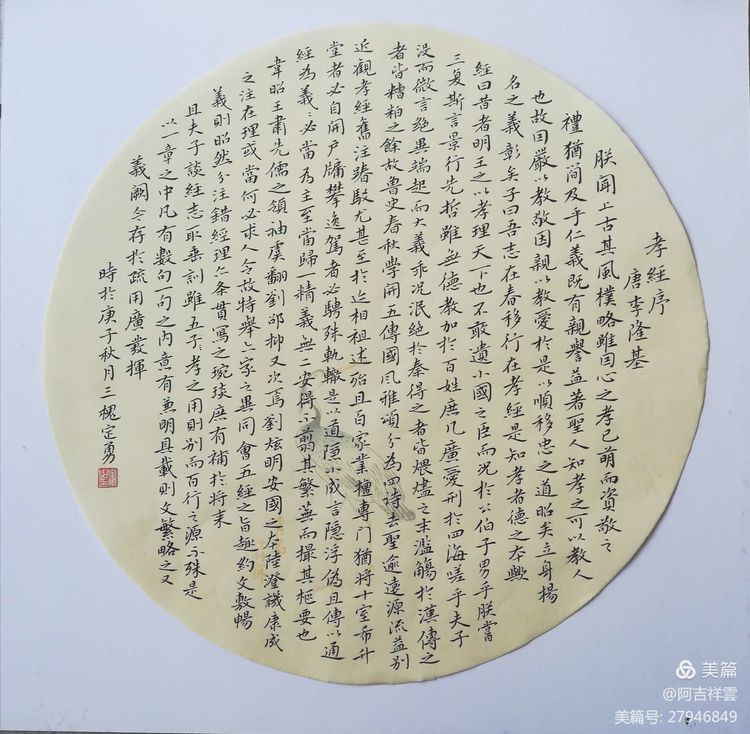 孝經序
唐李隆基
朕聞上古其風樸略雖因心之孝已萌而資敬之
禮猶簡及乎仁義既有親譽益著聖人知孝之可以教人
也故因嚴以教敬因親以教愛於是以順移忠之道昭矣立身揚
名之義彰矣子曰吾志在春移行在孝經是知孝者德之本歟
經曰昔者明王之以孝理天下也不敢遺小國之臣而況於公伯子男乎朕嘗
三复斯言景行先哲雖無德教加於百姓庶几廣愛刑於四海嗟乎夫子
没而微言絕異端起而大義乖况泯絕於秦得之者皆煨燼之末濫觴於漢傳之
者皆糟粕之餘故魯史春秋學開五傳國風雅頌分為四詩去聖逾遠源流益别
近觀孝經舊注踳駁尤甚至於迹相祖述殆且百家業擅專門猶將十室希升
堂者必自開户牖攀逸駕者必騁殊軌轍是以道隱小成言隐浮偽且傳以通
經為義々必當為主至當歸一精義無二安得不翦其繁蕪而撮其樞要也
韋昭王肅先儒之領袖虞翻劉邵抑又次焉劉炫明安國之本陸澄譏康成
之注在理或當何必求人今故特舉六家之異同會五經之旨趣約文敷暢
義則昭然分注錯經理亦条貫寫之琬琰庶有補於将来
且夫子談經志取垂訓雖五孝之用則别而百行之源不殊是
以一章之中凡有數句一句之内意有兼明具載則文繁略之又
義闕今存於疏用廣發揮
時於庚子秋月三槐定勇
美篇
@阿吉祥雲
美篇号: 27946849